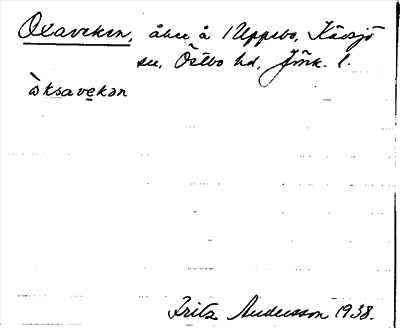 Oxaveken, åker å Uppebo, Kävsjö
sn, Östbo hd, Jönk. l.
òksavekən
Fritz Andersson 1938.